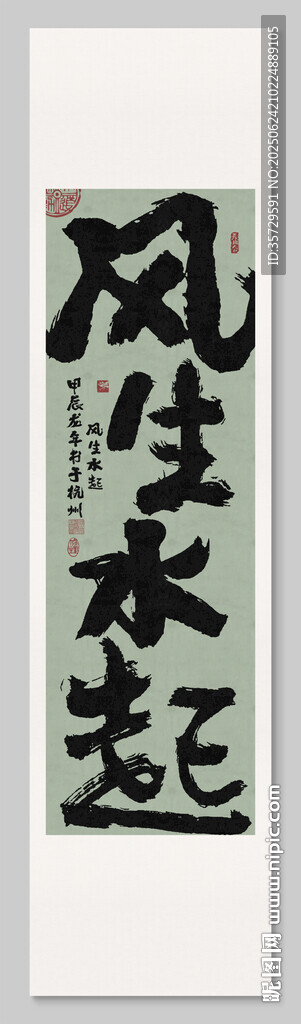 风生水起
风生水起
甲辰龙年书于杭州
ID:35729591 NO:20250624210224889105
昵图网 www.nipic.com